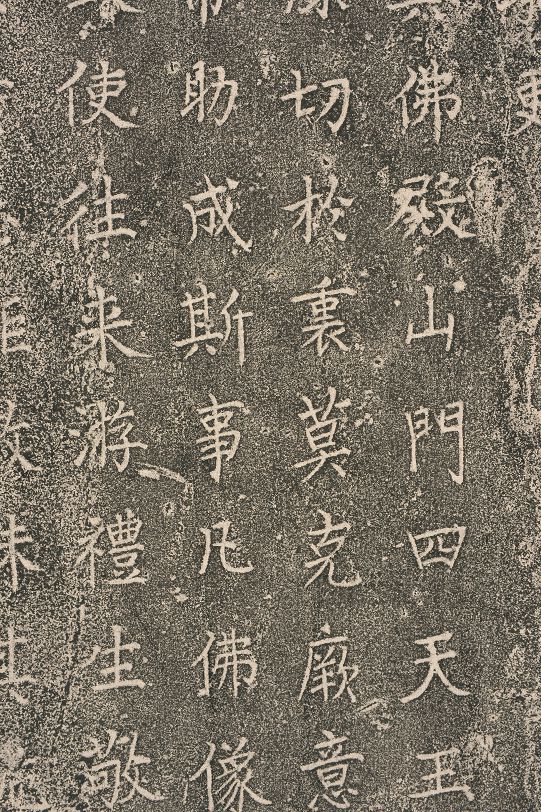 佛殿山門四天王
切於裏莫克厥意
助成斯事凡佛像
使往来游禮生敬